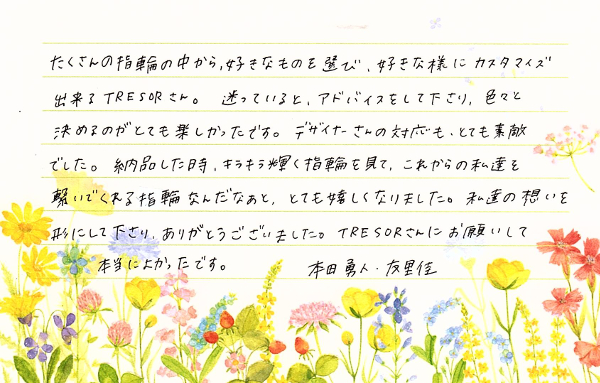 たくさんの指輪の中から、好きなものを選び、好きな様にカスタマイズ
出来るTRESORさん。 迷っていると、アドバイスをして下さり、色々と
決めるのがとても楽しかったです。デザイナーさんの対応も、とても素敵
でした。納品した時、キラキラ輝く指輪を見て、これからの私達を
繋いでくれる指輪なんだなぁと、とても嬉しくなりました。私達の想いを
形にして下さり、ありがとうございました。TRESORさんにお願いして
本当によかったです。 本田勇人・友里佳